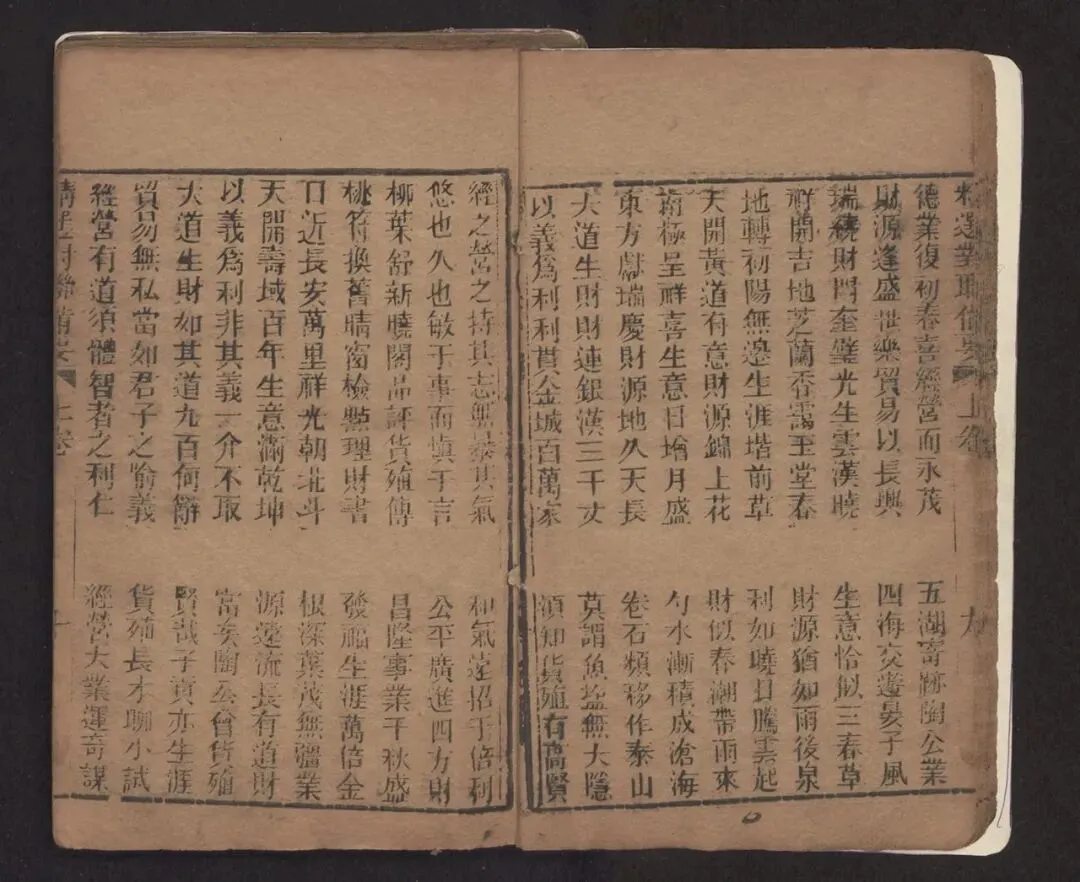 上卷
九
德業復初春喜經營而永茂
財源逢盛世樂貿易以長興
瑞繞財門奎壁光生雲漢曉
祥開吉地芝蘭香靄玉堂春
地轉初陽無邊生涯堦前草
天開黃道有意財源錦上花
南極呈祥喜生意日增月盛
東方獻瑞慶財源地久天長
大道生財財連銀漢三千丈
以義爲利利甚金城百萬家
五湖寄跡陶公業
四海交遊晏子風
生意恰似三春草
財源猶如雨後泉
利如曉日騰雲起
財似春潮帶雨來
勺水漸積成滄海
卷石頻移作泰山
莫謂魚塩無大隱
須知貨殖有高賢
經之營之持其志無暴其氣
悠也久也敏于事而慎于言
柳葉舒新曉閣品評貨殖傳
桃符換舊晴窗檢點理財書
日近長安萬里祥光朝北斗
天開壽域百年生意滿乾坤
以義爲利非其義一介不取
大道生財如其道九百何辭
貿易無私當如君子之喻義
經營有道須體智者之利仁
和氣遠招千倍利
公平廣進四方財
昌隆事業千秋盛
發福生涯萬倍金
根深葉茂無彊業
源遠流長有道財
富矣陶公曾貨殖
賢哉子貢亦生涯
貨殖長才聊小試
經營大業運奇謀
上卷
十